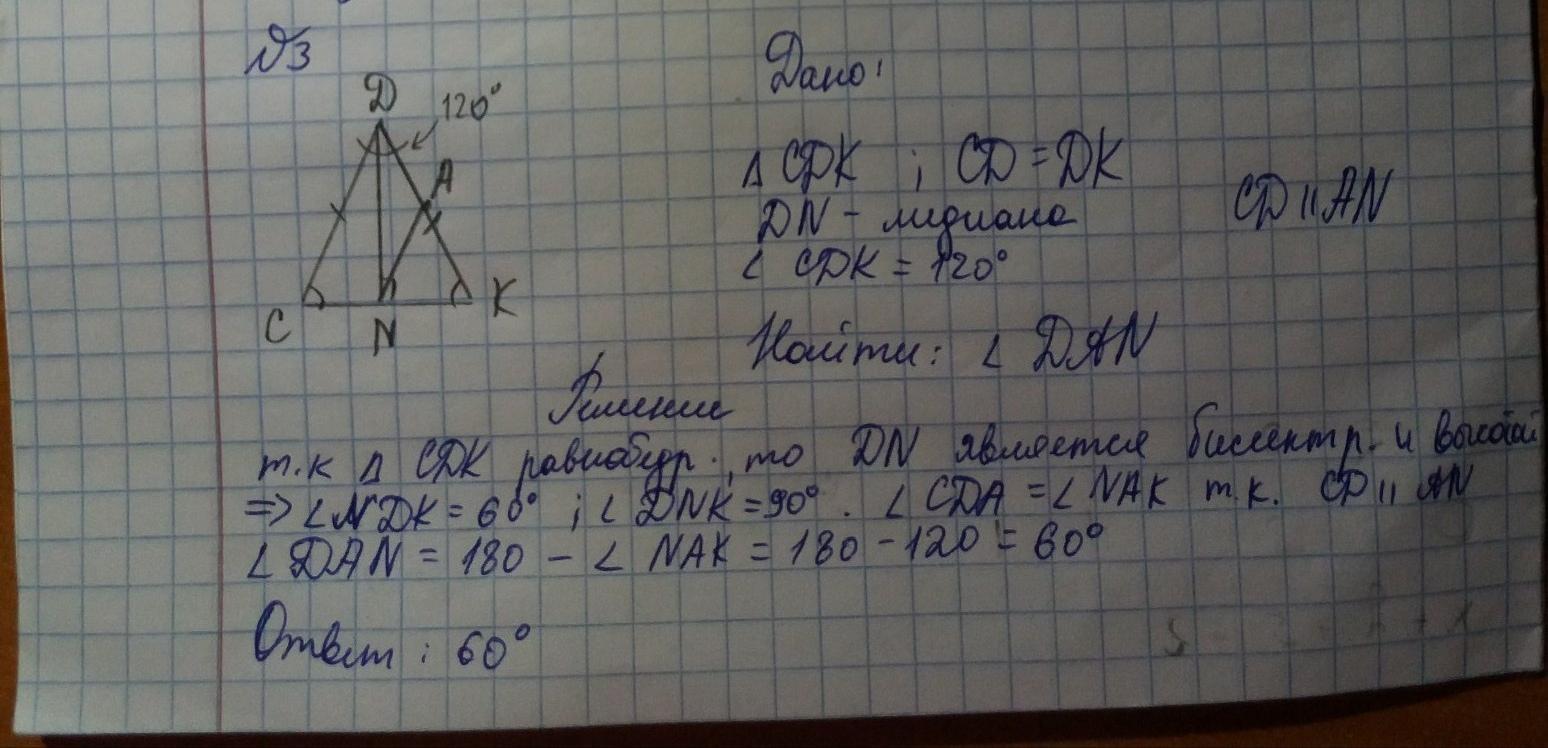 №3
Дано:
D 120°
A
C N K
Δ CDK ; CD = DK
DN - медиана CD || AN
∠ CDK = 120°
Найти: ∠ DAN
Решение
т.к Δ CDK равнобедр. , то DN является биссектр. и высотой
=> ∠NDK = 60° ; ∠ DNK = 90° . ∠ CDA = ∠ NAK т.к. CD || AN
∠ DAN = 180 - ∠ NAK = 180 - 120 = 60°
Ответ : 60°